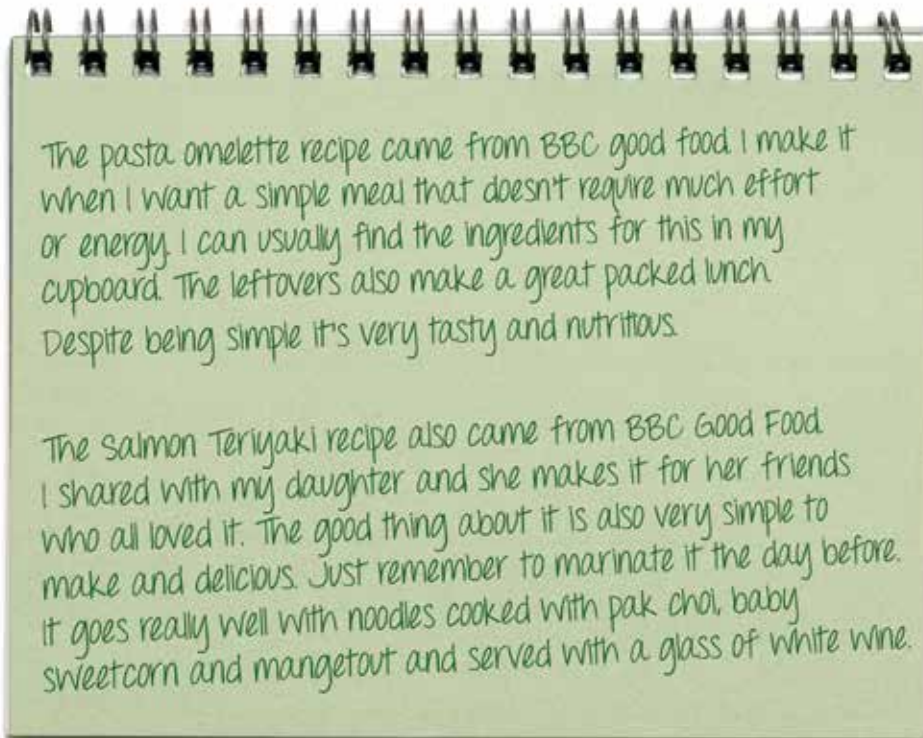 The pasta omelette recipe came from BBC good food. I make it
when I want a simple meal that doesn't require much effort
or energy. I can usually find the ingredients for this in my
cupboard. The leftovers also make a great packed lunch.
Despite being simple it's very tasty and nutritious.
The Salmon Teriyaki recipe also came from BBC Good Food.
I shared with my daughter and she makes it for her friends
who all loved it. The good thing about it is also very simple to
make and delicious. Just remember to marinate it the day before.
It goes really well with noodles cooked with pak choi, baby
sweetcorn and mangetout and served with a glass of white wine.